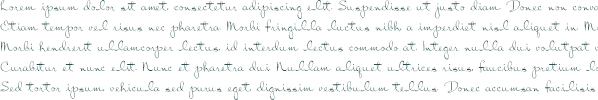 Lorem ipsum dolor sit amet, consectetur adipiscing elit. Suspendisse ut justo diam. Donec non conva
Etiam tempor vel risus nec pharetra. Morbi fringilla luctus nibh, a imperdiet nisl aliquet in. M
Morbi hendrerit ullamcorper lectus, id interdum lectus commodo at. Integer nulla dui, volutpat v
Curabitur et nunc elit. Nunc at pharetra dui. Nullam aliquet ultrices risus, faucibus pretium lo
Sed tortor ipsum, vehicula sed purus eget, dignissim vestibulum tellus. Donec accumsan facilisis